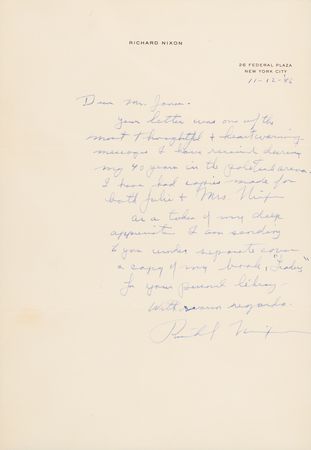 RICHARD NIXON
26 FEDERAL PLAZA
NEW YORK CITY
11-12-'86
Dear Mr.
Your letter was one of the
most thoughtful & heartwarming
messages I have received during
my 40 years in the political arena.
I have had copies made for
both Julie & Mrs Nixon
As a token of my deep
appreciation I am sending
to you under separate cover
a copy of my book, "Leaders"
for your personal library -
With warm regards.
Richard Nixon